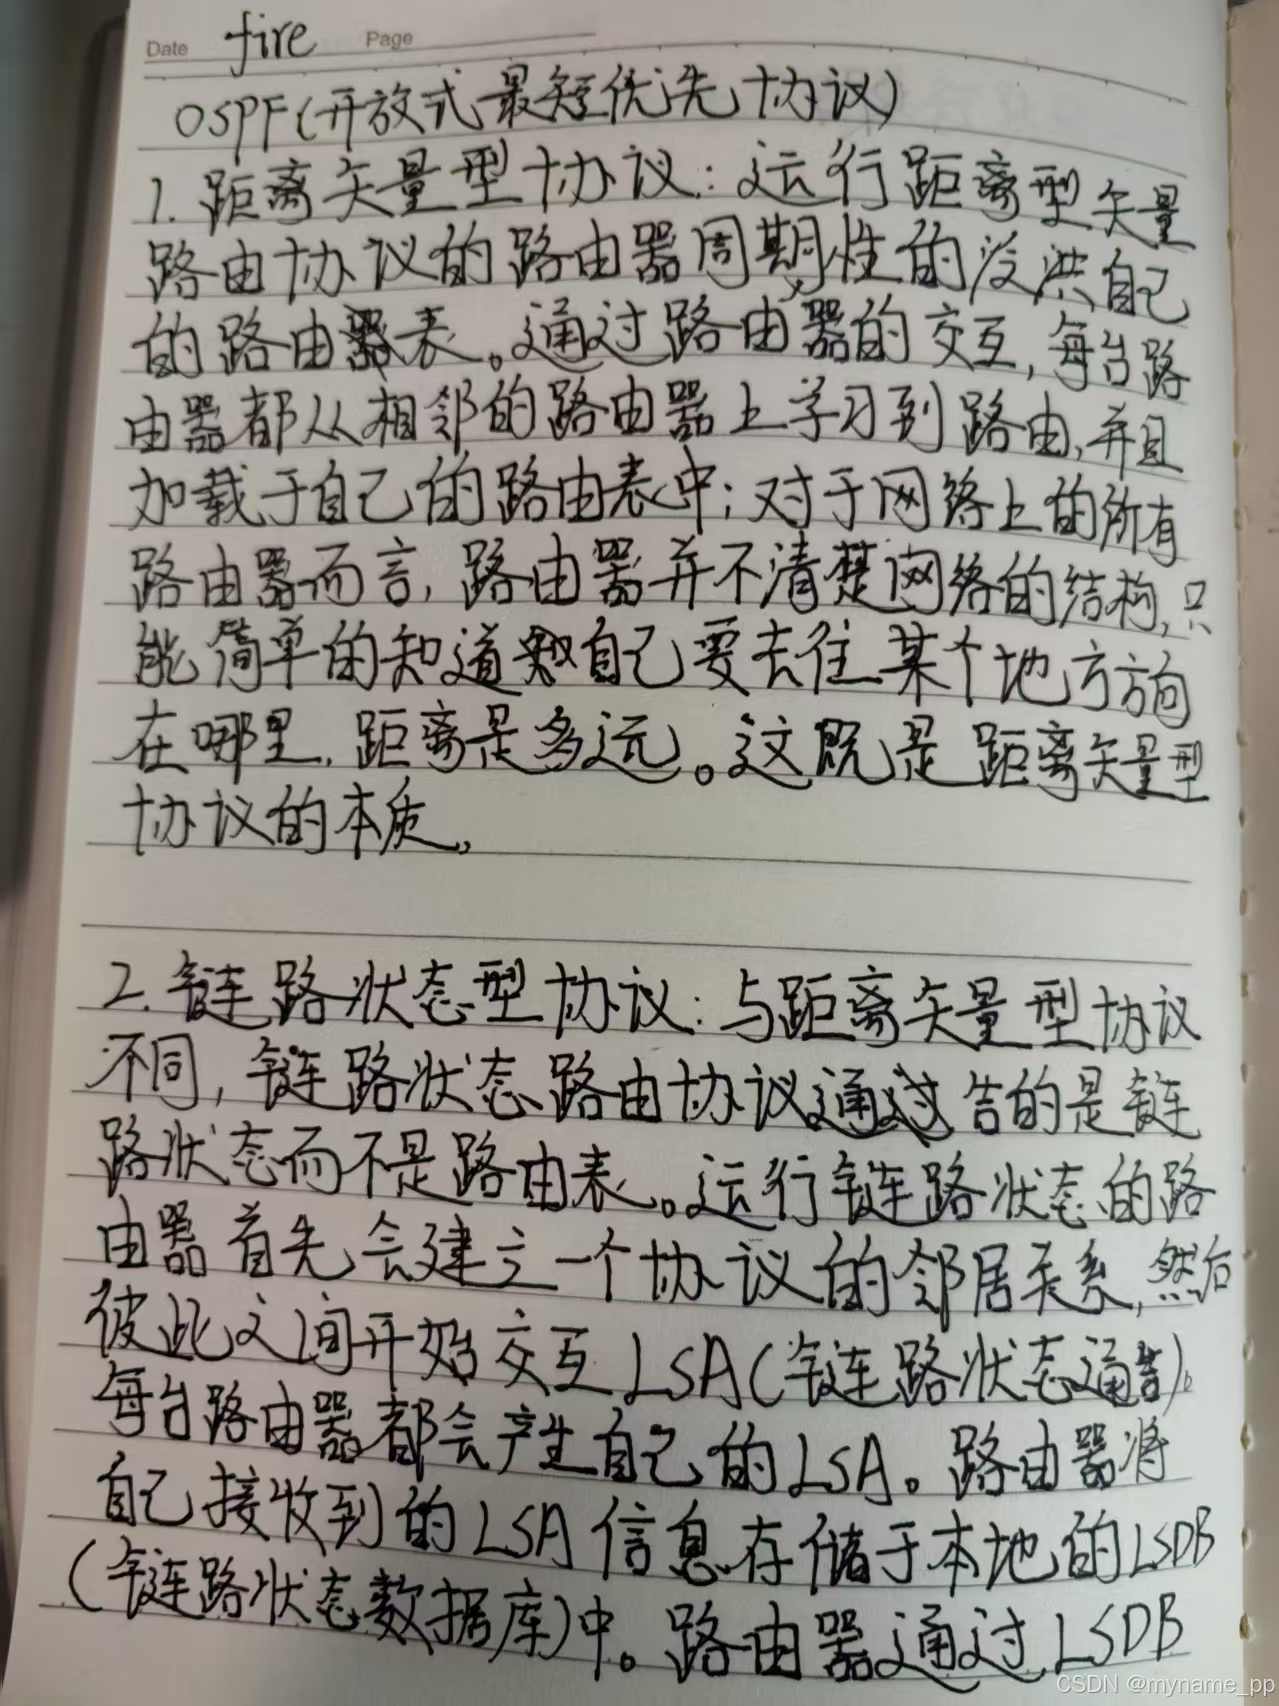 Date fire Page
OSPF(开放式最短优先协议)
1. 距离矢量型协议: 运行距离型矢量
路由协议的路由器周期性的泛洪自己
的路由器表。通过路由器的交互,每台路
由器都从相邻的路由器上学习到路由,并且
加载于自己的路由表中;对于网络上的所有
路由器而言,路由器并不清楚网络的结构,只
能简单的知道自己要去往某个地方方向
在哪里,距离是多远。这既是距离矢量型
协议的本质,
2. 链路状态型协议:与距离矢量型协议
不同,链路状态路由协议通过告的是链
路状态而不是路由表。运行链路状态的路
由器首先会建立一个协议的邻居关系,然后
彼此之间开始交互LSA(链路状态通告)。
每台路由器都会产生自己的LSA。路由器将
自己接收到的LSA信息存储于本地的LSDB
(链路状态数据库)中。路由器通过LSDB
CSDN @myname_pp